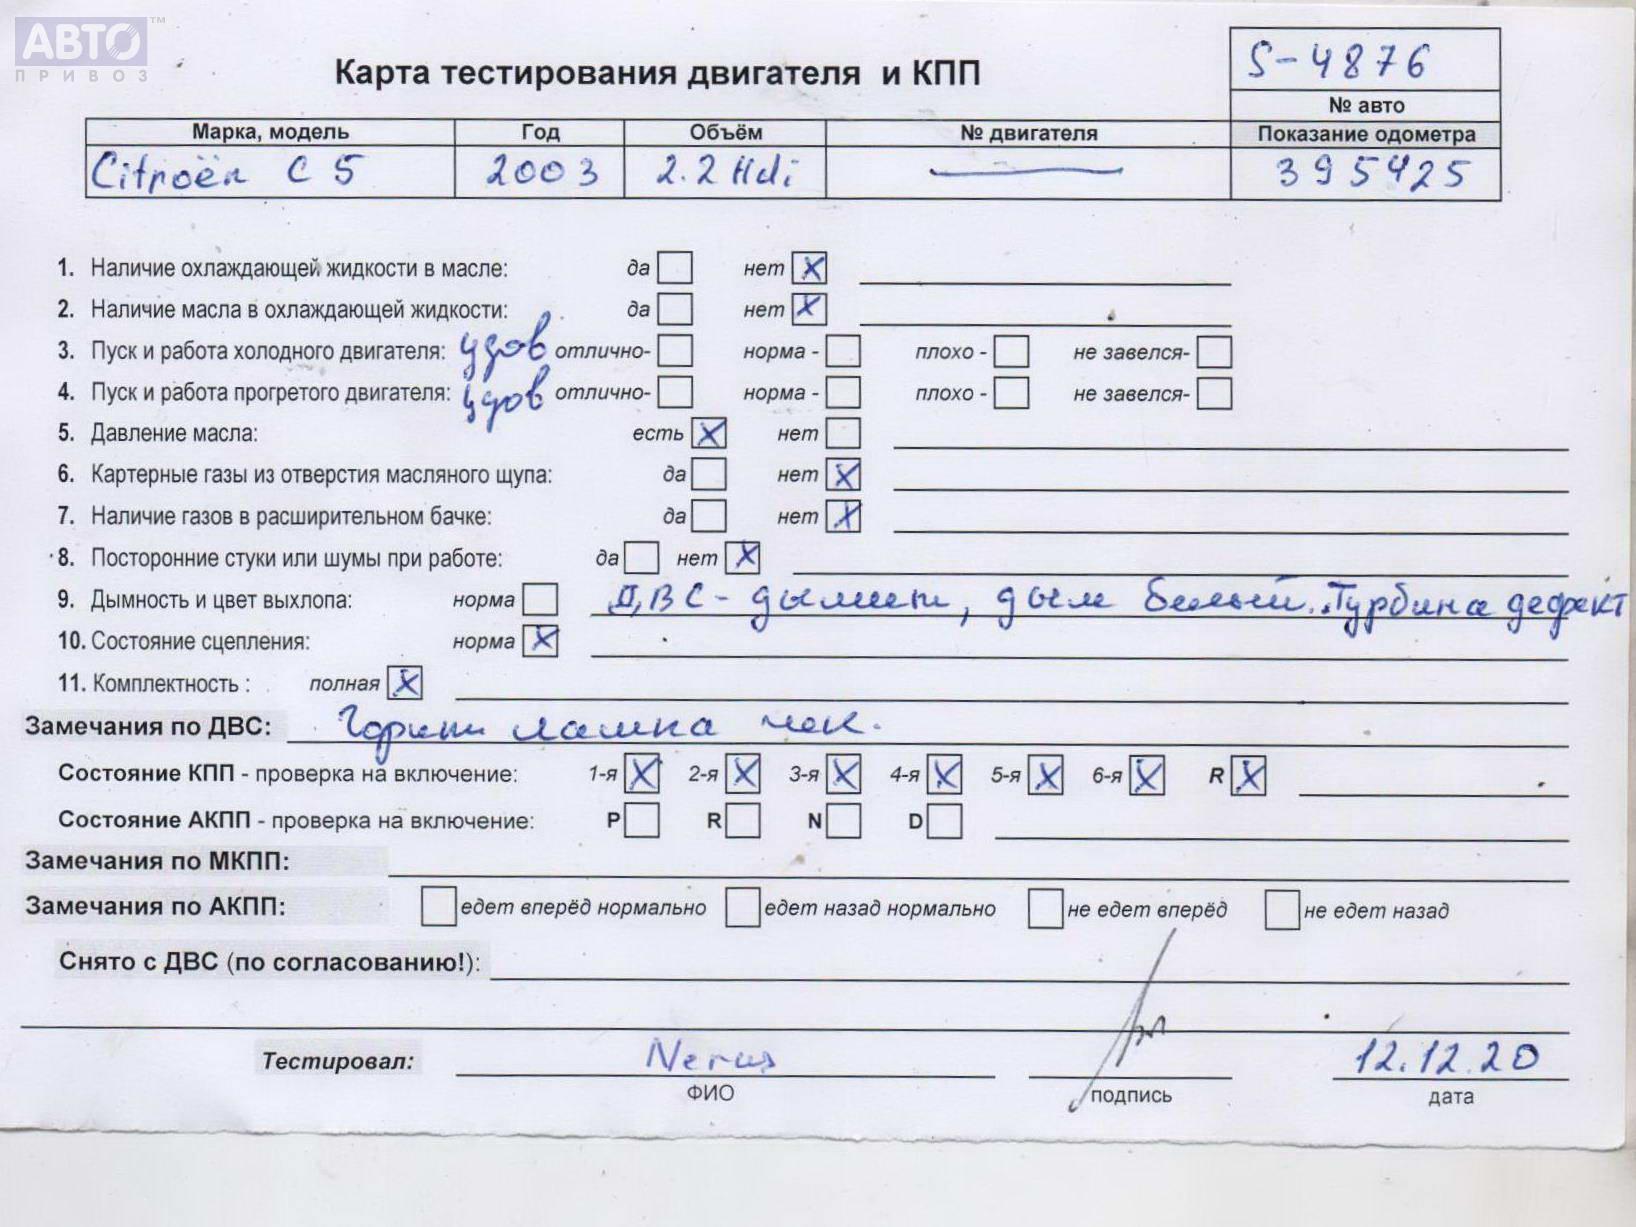 АВТО™
ПРИВОЗ
Карта тестирования двигателя и КПП
S-4876
№ авто
Марка, модель Год Объём № двигателя Показание одометра
Citroën C5 2003 2.2 Hdi — 395425
1. Наличие охлаждающей жидкости в масле: да нет X
2. Наличие масла в охлаждающей жидкости: да нет X
3. Пуск и работа холодного двигателя: удов отлично- норма - плохо - не завелся-
4. Пуск и работа прогретого двигателя: удов отлично- норма - плохо - не завелся-
5. Давление масла: есть X нет
6. Картерные газы из отверстия масляного щупа: да нет X
7. Наличие газов в расширительном бачке: да нет X
8. Посторонние стуки или шумы при работе: да нет X
9. Дымность и цвет выхлопа: норма ДВС - дымит, дым белый. Турбина дефект
10. Состояние сцепления: норма X
11. Комплектность : полная X
Замечания по ДВС: Горит лампа чек.
Состояние КПП - проверка на включение: 1-я X 2-я X 3-я X 4-я X 5-я X 6-я X R X
Состояние АКПП - проверка на включение: P R N D
Замечания по МКПП:
Замечания по АКПП: едет вперёд нормально едет назад нормально не едет вперёд не едет назад
Снято с ДВС (по согласованию!):
Тестировал: 12.12.20
ФИО подпись дата